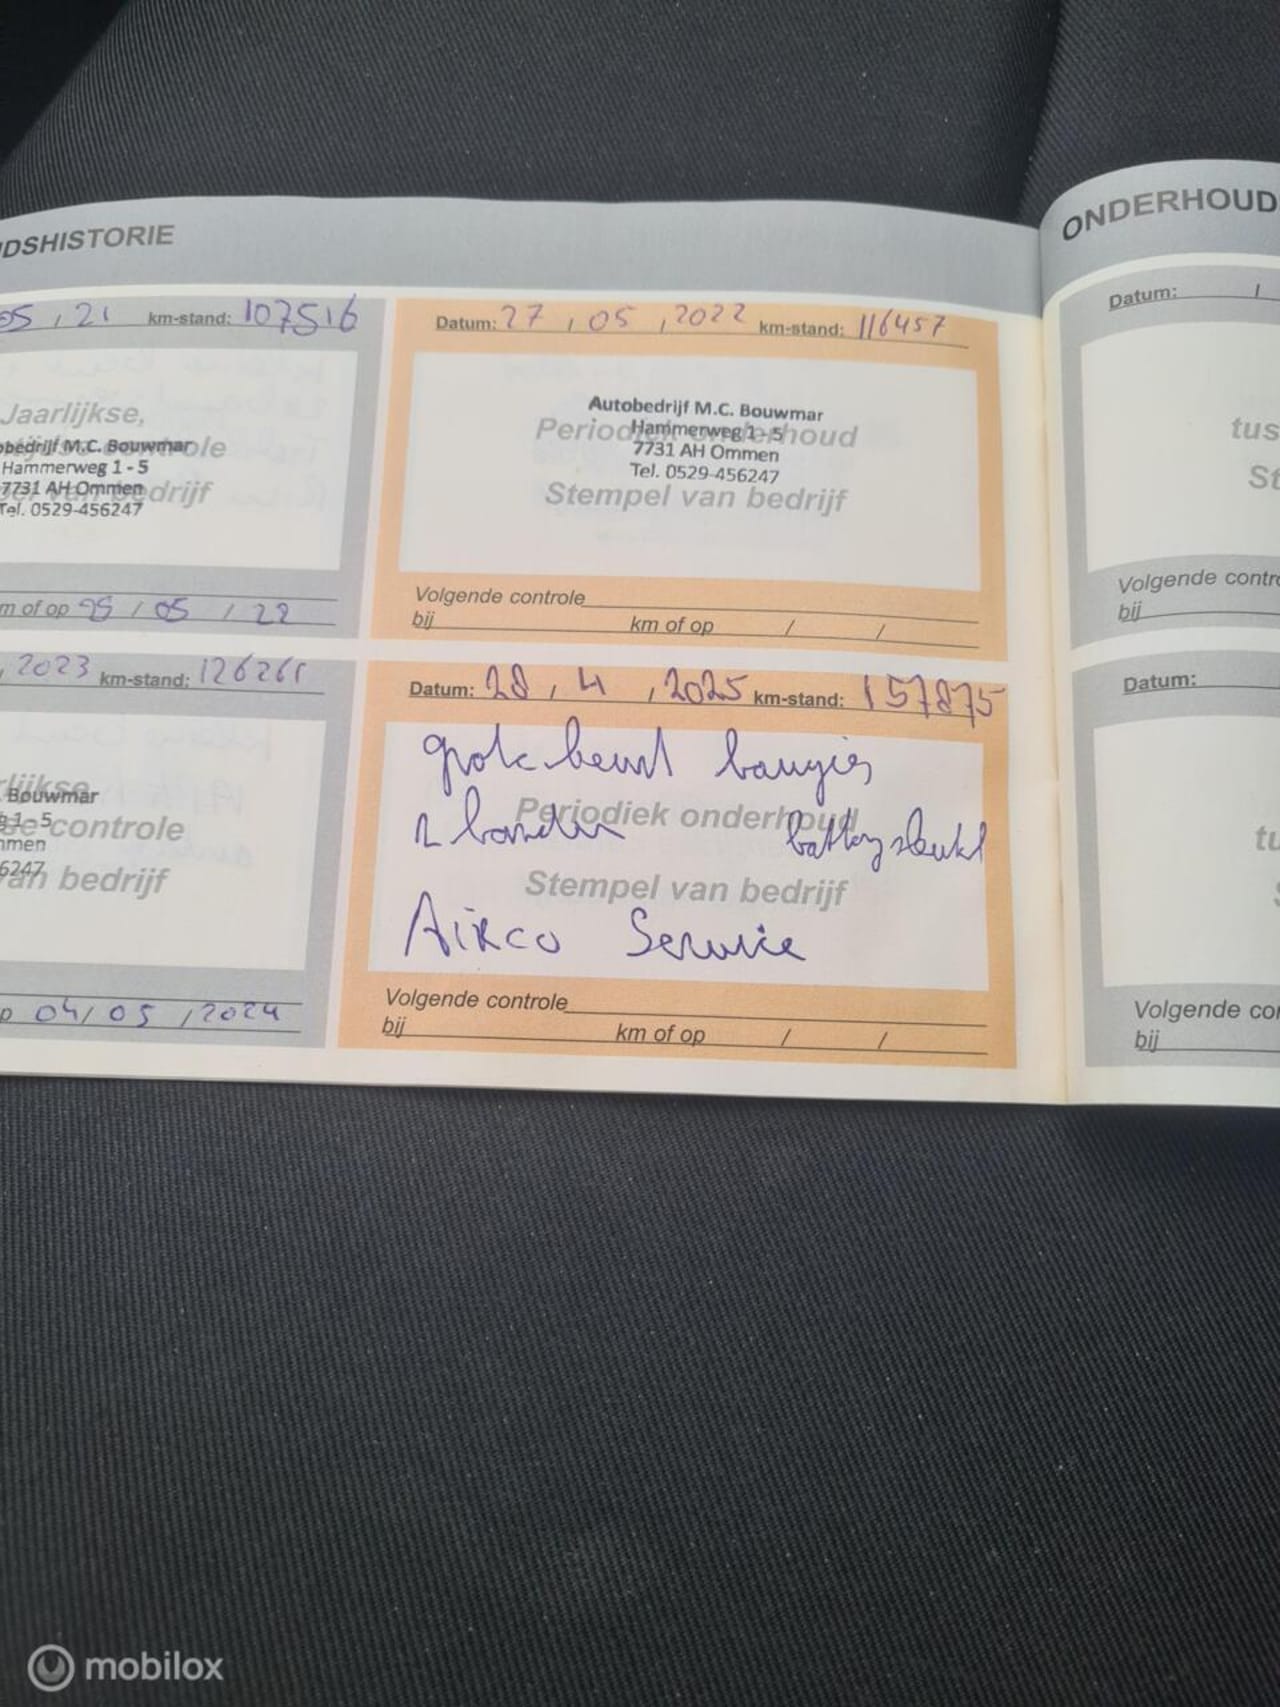 DSHISTORIE
05 / 21 km-stand: 107516
Jaarlijkse,
M.C. Bouwmar
Hammerweg 1 - 5
7731 AH Ommen
Tel. 0529-456247
bedrijf
m of op 25 / 05 / 22
Datum: 27 / 05 / 2022 km-stand: 116457
Autobedrijf M.C. Bouwmar
Periodiek onderhoud
Hammerweg 1 - 5
7731 AH Ommen
Tel. 0529-456247
Stempel van bedrijf
Volgende controle
bij km of op / /
, 2023 km-stand:
rlijkse
Bouwmar
g 1 - 5
se controle
mmen
6247
van bedrijf
p 04 / 05 / 2024
Datum: 28 / 4 / 2025 km-stand: 157875
grote beurt bougies
Periodiek onderhoud
2 banden
Stempel van bedrijf
Airco Service
Volgende controle
bij km of op / /
ONDERHOUD
Datum: /
tus
St
Volgende contro
bij
Datum:
tu
S
Volgende cor
bij
mobilox